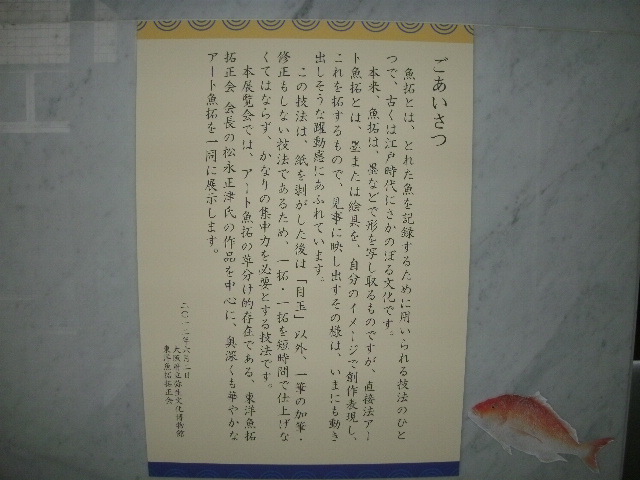 ごあいさつ
魚拓とは、とれた魚を記録するために用いられる技法のひと
つで、古くは江戸時代にさかのぼる文化です。
本来、魚拓は、墨などで形を写し取るものですが、直接法アー
ト魚拓とは、墨または絵具を、自分のイメージで創作表現し、
これを拓するもので、見事に映し出すその様は、いまにも動き
出しそうな躍動感にあふれています。
この技法は、紙を剥がした後は「目玉」以外、一筆の加筆・
修正もしない技法であるため、一拓・一拓を短時間で仕上げな
くてはならず、かなりの集中力を必要とする技法です。
本展覧会では、アート魚拓の草分け的存在である、東洋魚拓
拓正会 会長の松永正津氏の作品を中心に、奥深くも華やかな
アート魚拓を一同に展示します。
二〇一一年六月一日
大阪府立弥生文化博物館
東洋魚拓拓正会